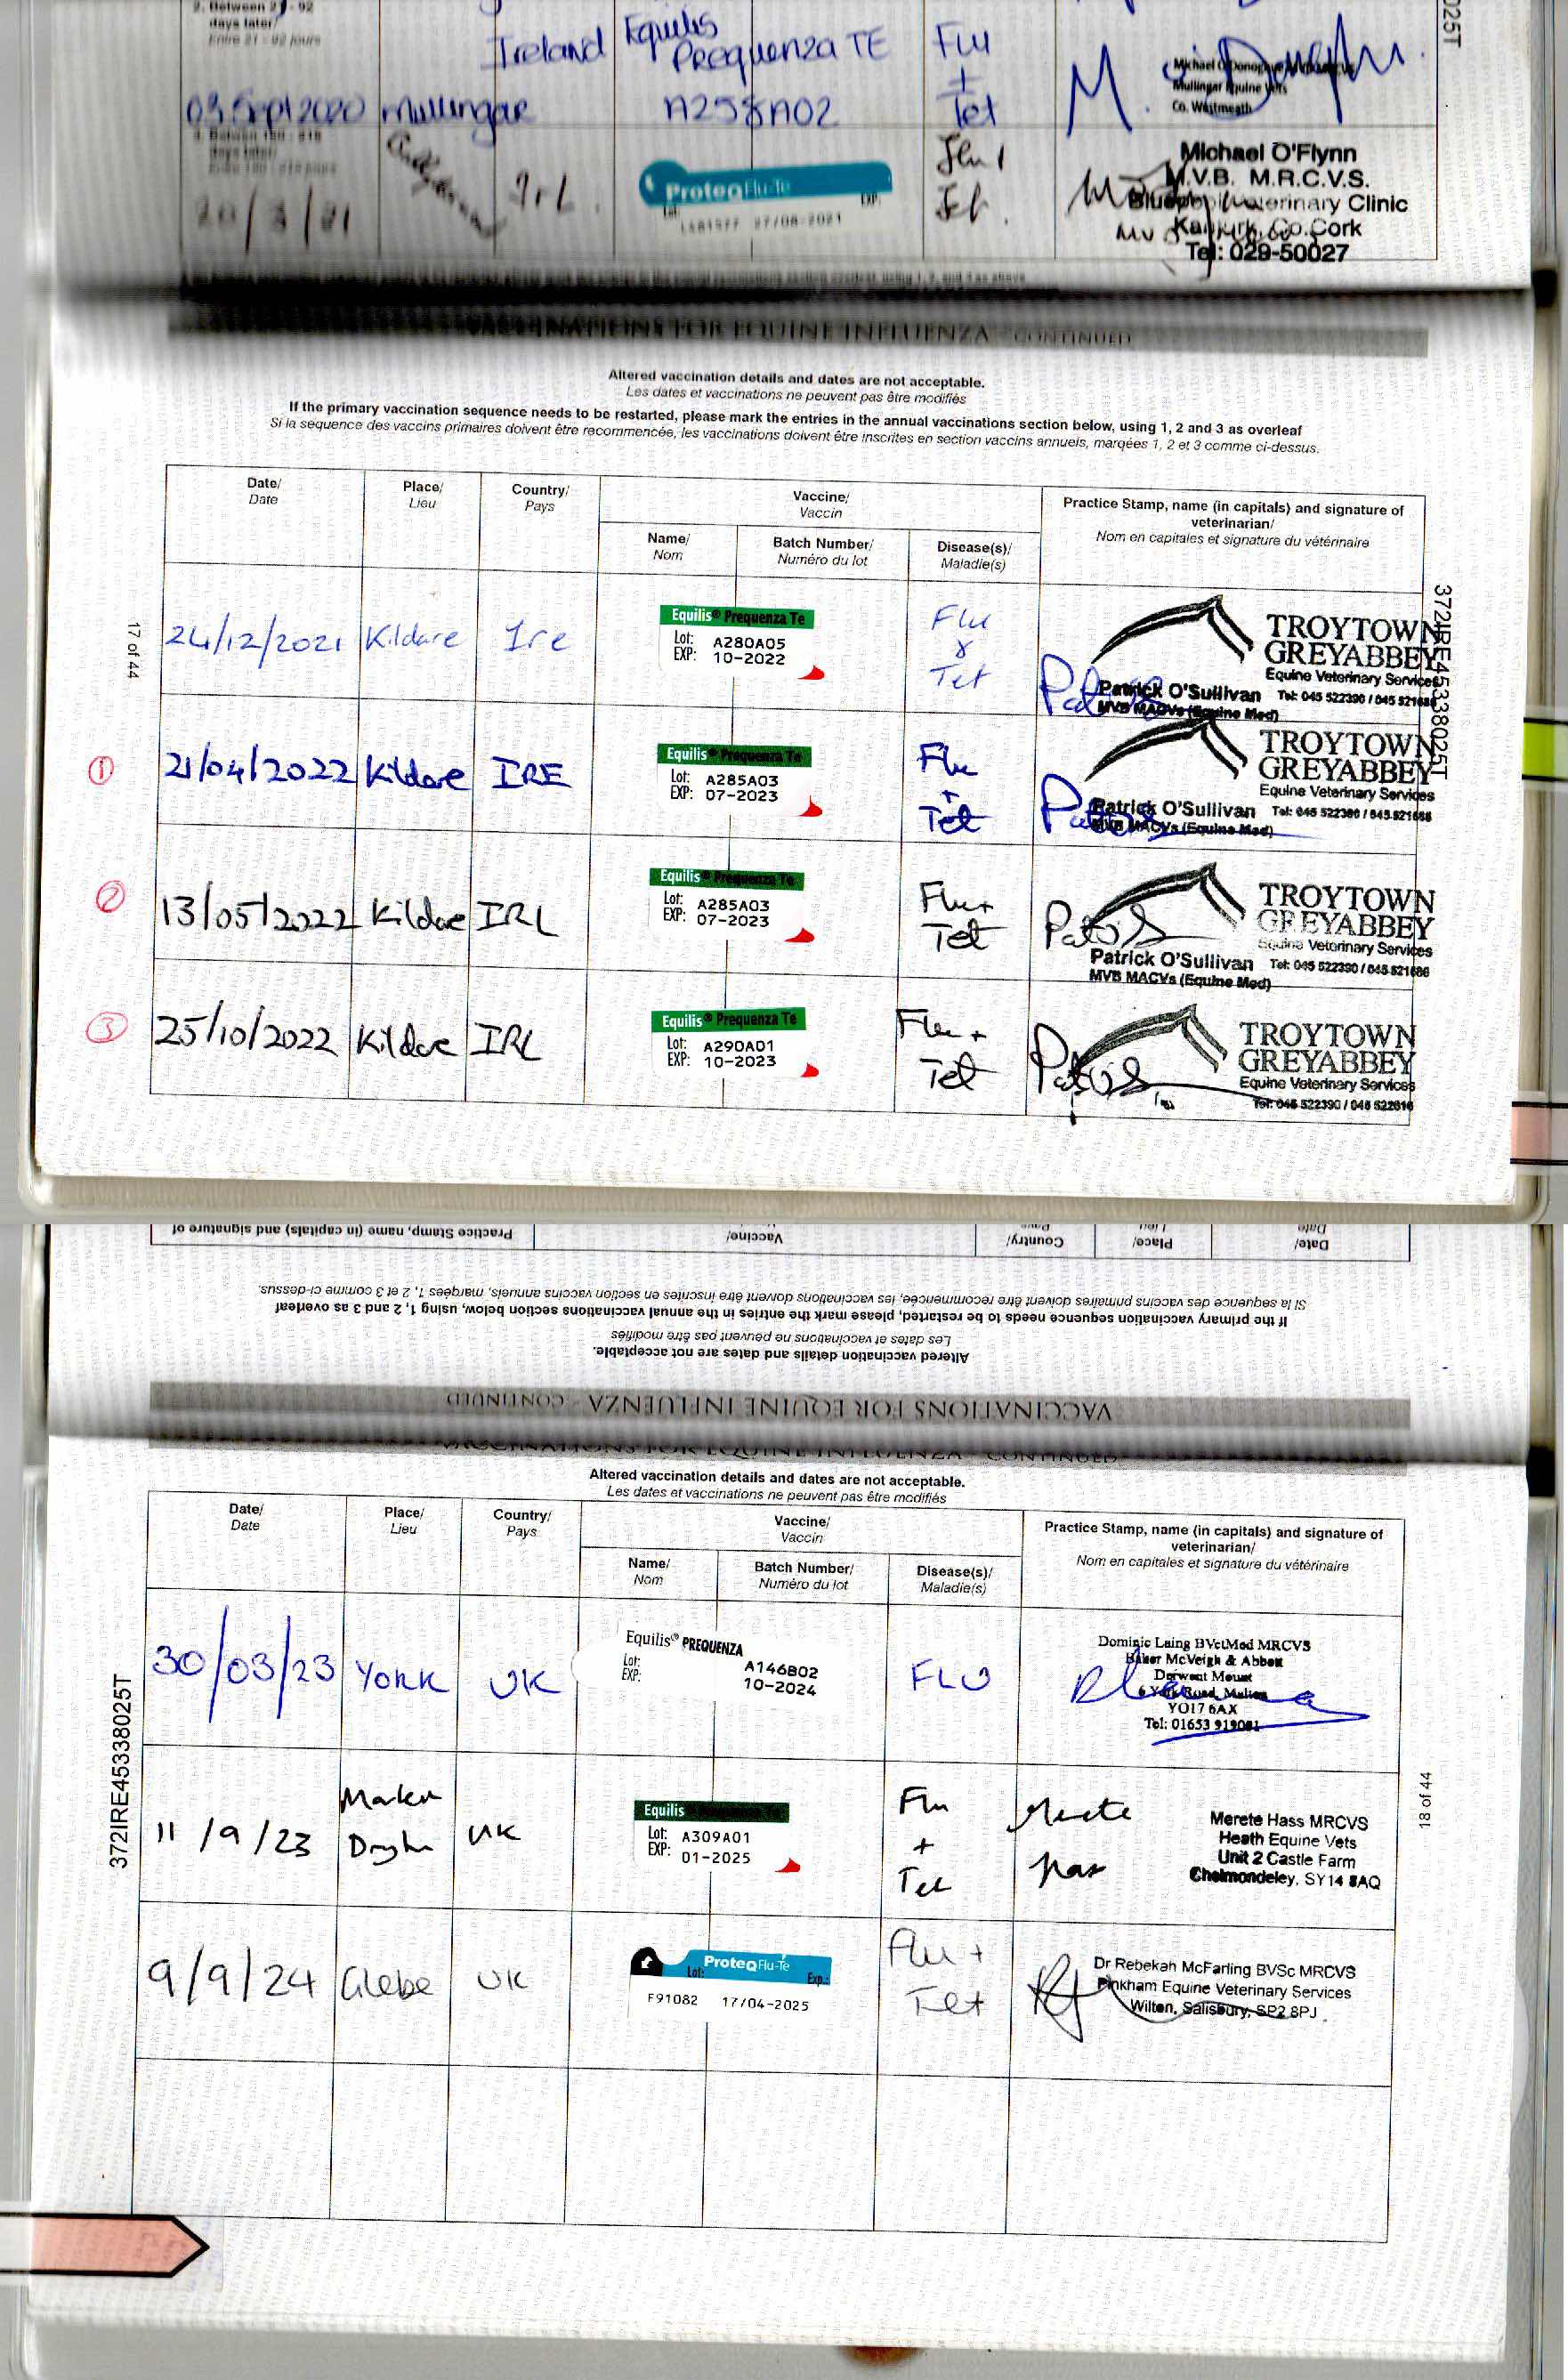 days later/
Ireland Equilis
Prequenza TE
Flu
+
Tet
03 Sept 2020 Mullingar A258A02
Michael O'Donoghue
Mullingar Equine Vets
Co. Westmeath
025T
Irl.
ProteqFlu-Te
Lot: EXP:
L481377 27/08/2021
Flu /
Michael O'Flynn
M.V.B. M.R.C.V.S.
Veterinary Clinic
Kanturk, Co.Cork
Tel: 029-50027
VACCINATIONS FOR EQUINE INFLUENZA - CONTINUED
Altered vaccination details and dates are not acceptable.
Les dates et vaccinations ne peuvent pas être modifiés
If the primary vaccination sequence needs to be restarted, please mark the entries in the annual vaccinations section below, using 1, 2 and 3 as overleaf
Si la séquence des vaccins primaires doivent être recommencée, les vaccinations doivent être inscrites en section vaccins annuels, marqées 1, 2 et 3 comme ci-dessus.
Date/
Date
Place/
Lieu
Country/
Pays
Vaccine/
Vaccin
Name/
Nom
Batch Number/
Numéro du lot
Disease(s)/
Maladie(s)
Practice Stamp, name (in capitals) and signature of
veterinarian/
Nom en capitales et signature du vétérinaire
17 of 44
372IRE45338025T
24/12/2021 Kildare Ire
Equilis® Prequenza Te
Lot: A280A05
EXP: 10-2022
Flu
&
Tet
TROYTOWN
GREYABBEY
Equine Veterinary Services
Patrick O'Sullivan Tel: 045 522390 / 045 521686
MVB MACVs (Equine Med)
① 21/04/2022 Kildare IRE
Equilis® Prequenza Te
Lot: A285A03
EXP: 07-2023
Flu
+
Tet
TROYTOWN
GREYABBEY
Equine Veterinary Services
Patrick O'Sullivan Tel: 045 522390 / 045 521686
MVB MACVs (Equine Med)
② 13/05/2022 Kildare IRL
Equilis® Prequenza Te
Lot: A285A03
EXP: 07-2023
Flu+
Tet
TROYTOWN
GREYABBEY
Equine Veterinary Services
Patrick O'Sullivan Tel: 045 522390 / 045 521686
MVB MACVs (Equine Med)
③ 25/10/2022 Kildare IRL
Equilis® Prequenza Te
Lot: A290A01
EXP: 10-2023
Flu +
Tet
TROYTOWN
GREYABBEY
Equine Veterinary Services
Tel: 045 522390 / 045 522616
Practice Stamp, name (in capitals) and signature of
Vaccine/
Country/
Place/
Date/
Date
Si la séquence des vaccins primaires doivent être recommencée, les vaccinations doivent être inscrites en section vaccins annuels, marqées 1, 2 et 3 comme ci-dessus.
If the primary vaccination sequence needs to be restarted, please mark the entries in the annual vaccinations section below, using 1, 2 and 3 as overleaf
Les dates et vaccinations ne peuvent pas être modifiés
Altered vaccination details and dates are not acceptable.
VACCINATIONS FOR EQUINE INFLUENZA - CONTINUED
VACCINATIONS FOR EQUINE INFLUENZA - CONTINUED
Altered vaccination details and dates are not acceptable.
Les dates et vaccinations ne peuvent pas être modifiés
Date/
Date
Place/
Lieu
Country/
Pays
Vaccine/
Vaccin
Name/
Nom
Batch Number/
Numéro du lot
Disease(s)/
Maladie(s)
Practice Stamp, name (in capitals) and signature of
veterinarian/
Nom en capitales et signature du vétérinaire
372IRE45338025T
18 of 44
30/03/23 YORK UK
Equilis® PREQUENZA
Lot: A146B02
EXP: 10-2024
FLU
Dominic Laing BVetMed MRCVS
Baker McVeigh & Abbott
Derwent Mount
6 York Road, Malton
YO17 6AX
Tel: 01653 919081
11/9/23 Market
Drayton UK
Equilis
Lot: A309A01
EXP: 01-2025
Flu
+
Tet
Merete
Hass
Merete Hass MRCVS
Heath Equine Vets
Unit 2 Castle Farm
Cholmondeley, SY14 8AQ
9/9/24 Glebe UK
ProteqFlu-Te
Lot: Exp.:
F91082 17/04-2025
Flu +
Tet
Dr Rebekah McFarling BVSc MRCVS
Pinkham Equine Veterinary Services
Wilton, Salisbury, SP2 8PJ